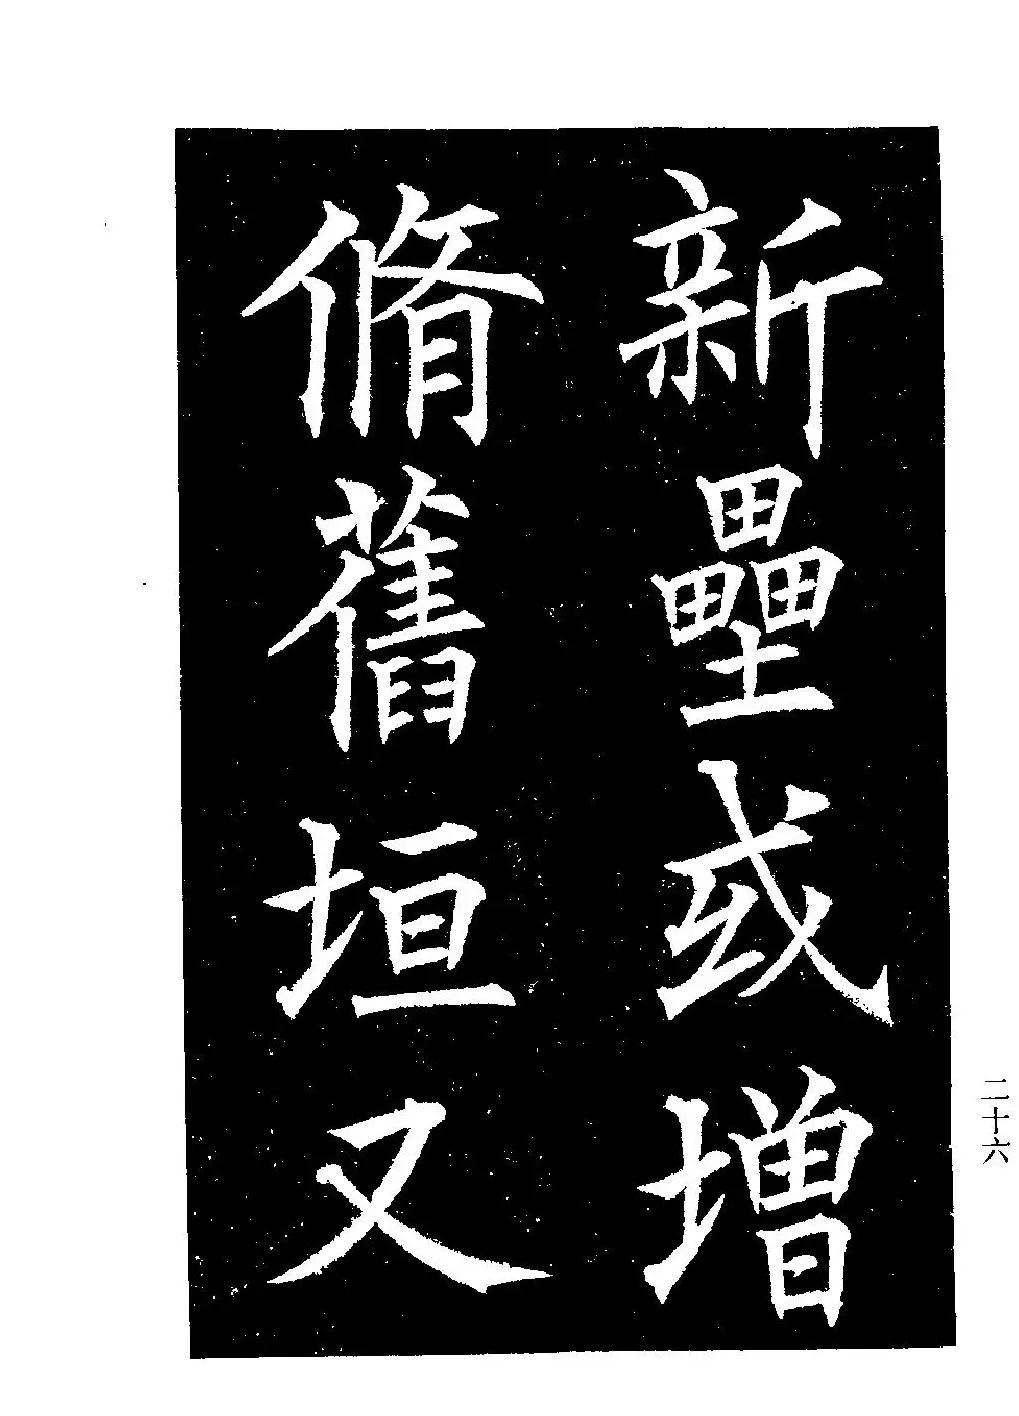 新壘或增
脩舊垣又
二十六